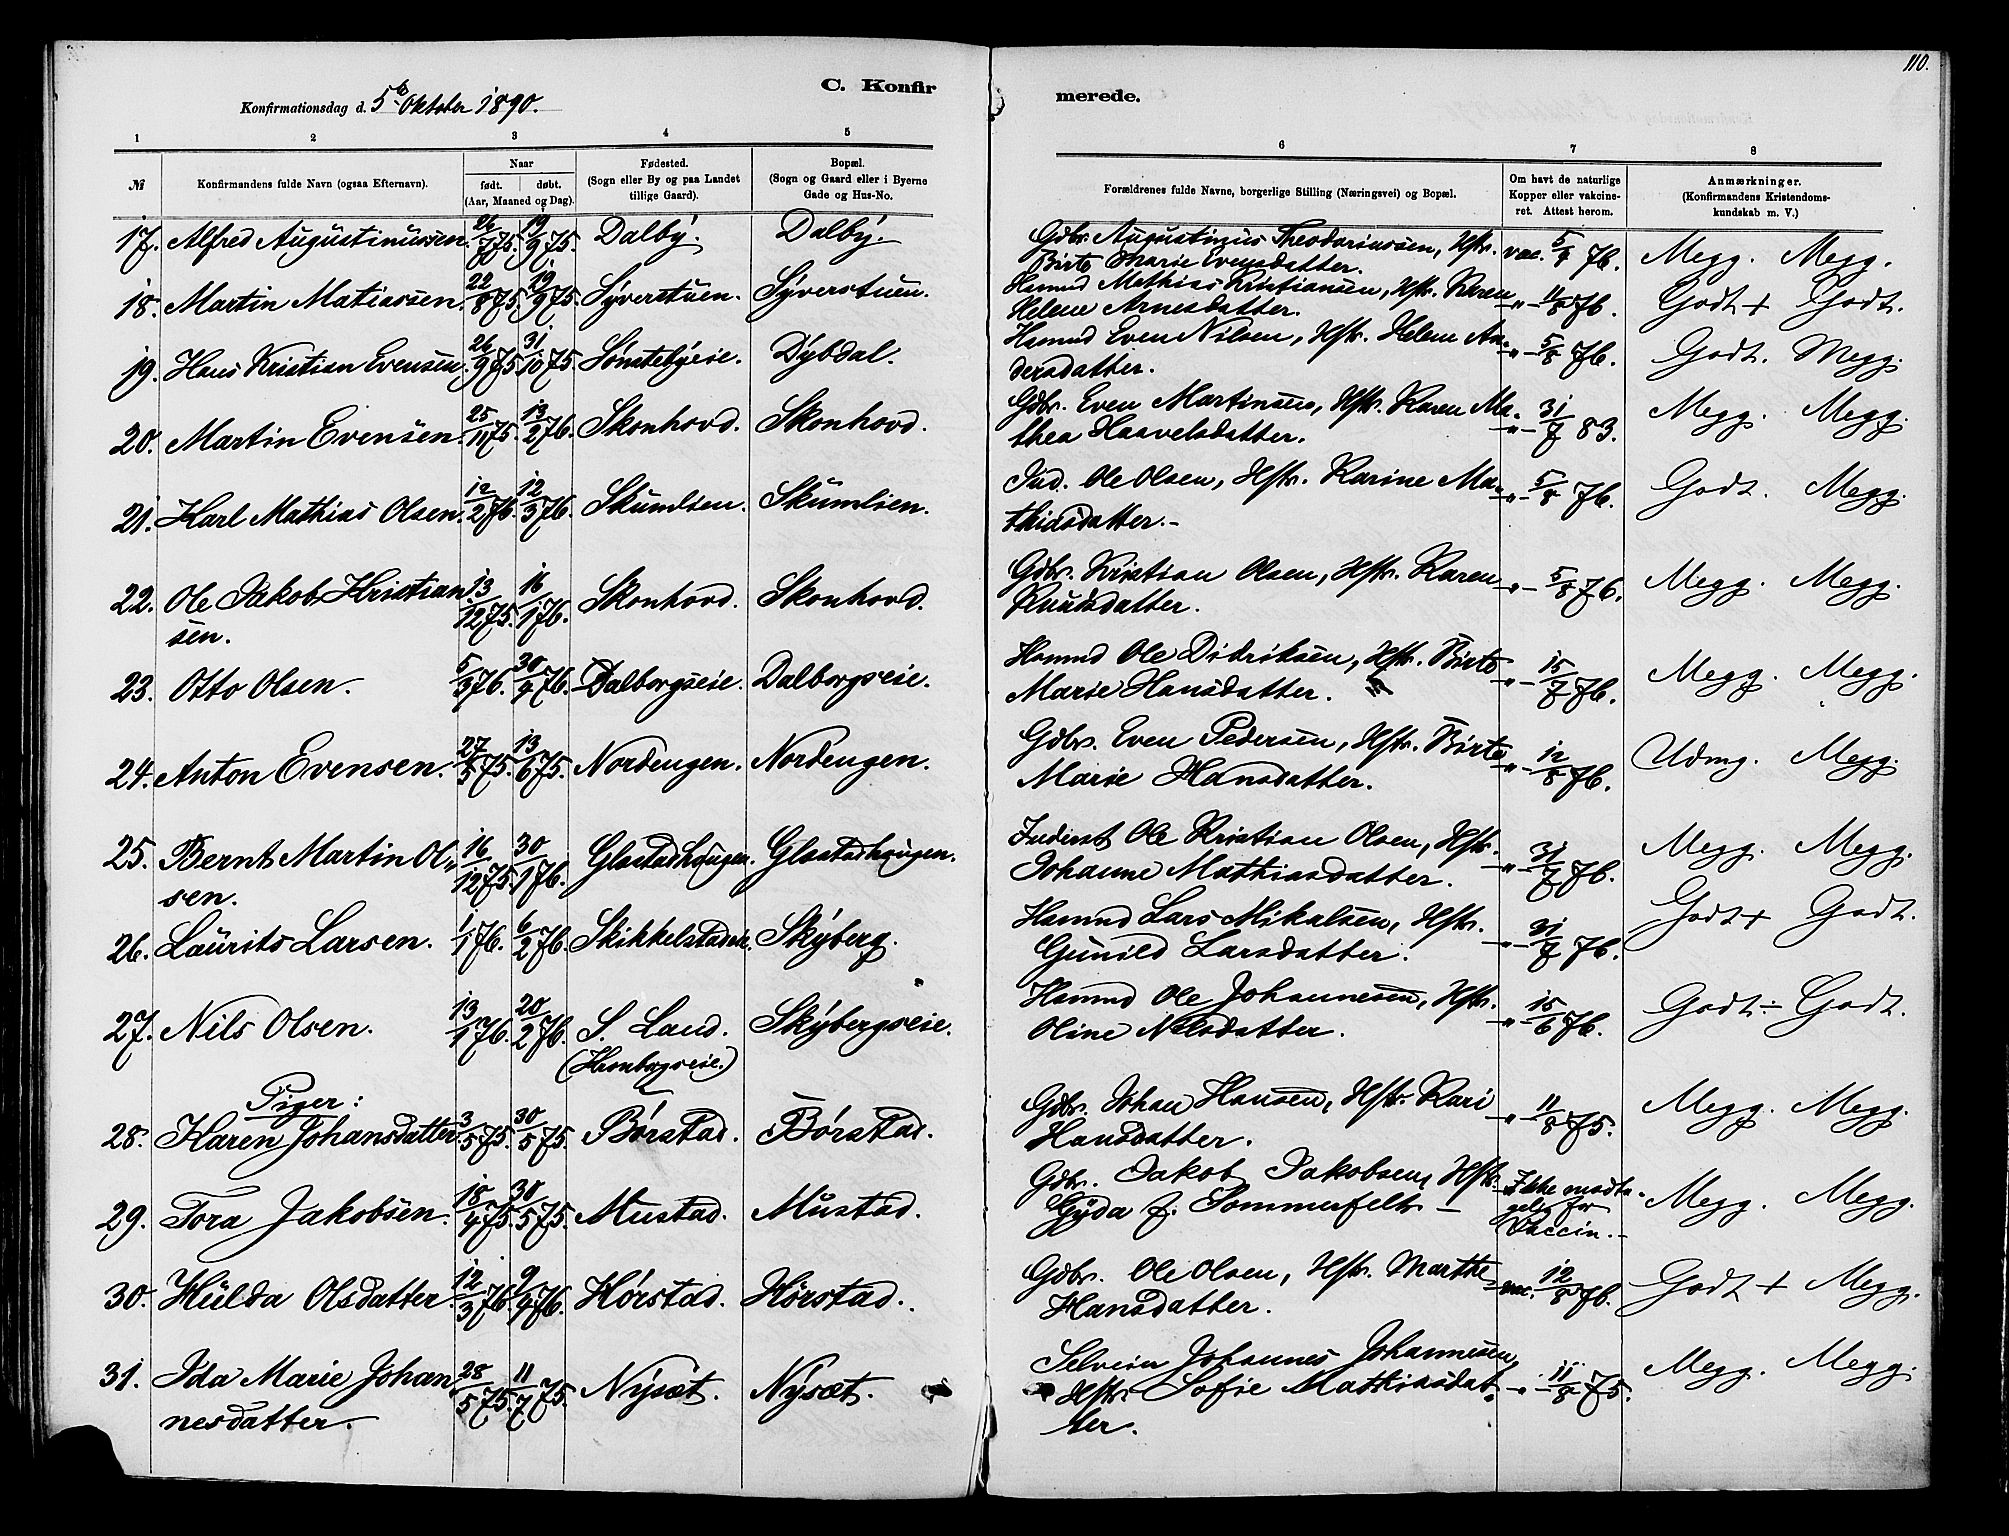 110.
C. Konfir merede.
Konfirmationsdag d. 5te Oktober 1890.
1 2 3 4 5 6 7 8
№ Konfirmandens fulde Navn (ogsaa Efternavn). Naar født. døbt. (Aar, Maaned og Dag). Fødested. (Sogn eller By og paa Landet tillige Gaard). Bopæl. (Sogn og Gaard eller i Byerne Gade og Hus-No. Forældrenes fulde Navne, borgerlige Stilling (Næringsvei) og Bopæl. Om havt de naturlige Kopper eller vakcineret. Attest herom. Anmærkninger. (Konfirmandens Kristendomskundskab m. V.)
17. Alfred Augustinussen. 26/7 75. 19/9 75. Dalby. Dalby. Gdbr. Augustinus Theodoriussen, Hstr. vac. 5/7 76. Megg. Megg.
Birte Marie Evensdatter.
18. Martin Matiassen. 22/8 75. 19/9 75. Syverstuen. Syverstuen. Hsmnd Mathias Kristiansen, Hstr. Karen -"- 11/8 76. Godt + Godt.
Helene Arnesdatter.
19. Hans Kristian Evensen. 26/9 75. 31/10 75. Sønstebyeie. Dybdal. Hsmnd Even Nilsen, Hstr. Helene An- -"- 5/8 76. Godt. Megg.
dersdatter.
20. Martin Evensen. 25/11 75. 13/2 76. Skonhovd. Skonhovd. Gdbr. Even Martinsen, Hstr. Karen Ma- -"- 31/7 83. Megg. Megg.
thea Haavelsdatter.
21. Karl Mathias Olsen. 12/2 76. 12/3 76. Skumlsen. Skumlsen. Ind. Ole Olsen, Hstr. Karine Ma- -"- 5/8 76. Godt. Megg.
thiasdatter.-
22. Ole Jakob Kristian 13/12 75. 16/1 76. Skonhovd. Skonhovd. Gdbr. Kristian Olsen, Hstr. Karen -"- 5/8 76. Megg. Megg.
sen. Knudsdatter.
23. Otto Olsen. 5/3 76. 30/4 76. Dalborgseie. Dalborgseie. Hsmnd Ole Didriksen, Hstr. Birte -"- 15/7 76. Megg. Megg.
Marie Hansdatter.
24. Anton Evensen. 27/5 75. 13/6 75. Nordengen. Nordengen. Gdbr. Even Pedersen, Hstr. Birte -"- 12/8 76. Udmg. Megg.
Marie Hansdatter.
25. Bernt Martin Ol- 16/12 75. 30/1 76. Glastadhaugen. Glastadhaugen. Inderst Ole Kristian Olsen, Hstr. -"- 31/7 76. Megg. Megg.
sen. Johanne Mathiasdatter.
26. Laurits Larsen. 1/1 76. 6/2 76. Skikkelstadeie. Skyberg. Hsmnd Lars Mikalsen, Hstr. -"- 31/7 76. Godt + Godt.
Gunild Larsdatter.
27. Nils Olsen. 13/1 76. 20/2 76. S. Land. Skybergseie. Hsmnd Ole Johannesen, Hstr. -"- 15/6 76. Godt ÷ Godt.
(Hasnborgseie.) Oline Nilsdatter.
Piger:
28. Karen Johansdatter. 3/5 75. 30/5 75. Børstad. Børstad. Gdbr. Johan Hansen, Hstr. Kari -"- 11/8 75. Megg. Megg.
Hansdatter.
29. Tora Jakobsen. 18/4 75. 30/5 75. Mustad. Mustad. Gdbr. Jakob Jakobsen, Hstr. Ikke modta- Megg. Megg.
Gyda f. Sommerfelt - gelig for
Vaccin.-
30. Hulda Olsdatter. 12/3 76. 9/4 76. Hørstad. Hørstad. Gdbr. Ole Olsen, Hstr. Marthe vac. 12/8 76. Godt + Megg.
Hansdatter.
31. Ida Marie Johan 28/5 75. 11/7 75. Nysæt. Nysæt. Selveier Johannes Johannesen, Megg. Megg.
nesdatter. Hstr. Sofie Mathiasdat -"- 11/8 75.
ter.